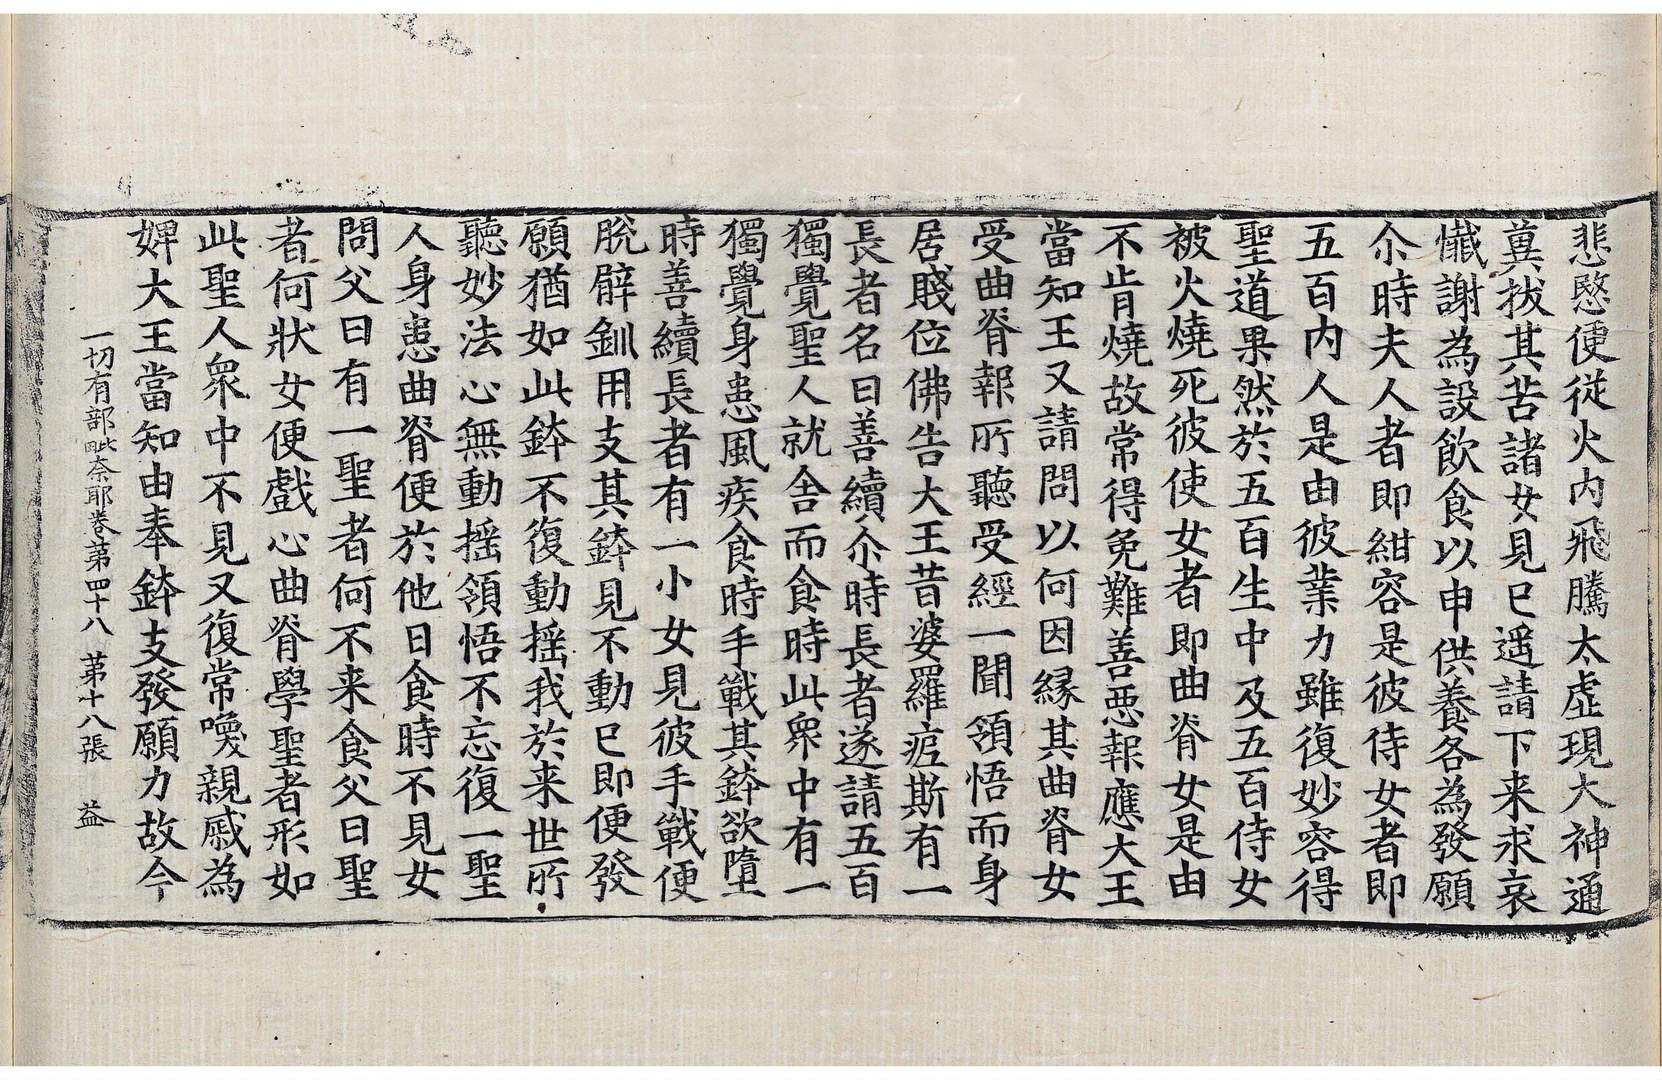 悲愍便從火內飛騰太虛現大神通
冀拔其苦諸女見已遥請下来求哀
懴謝為設飲食以申供養各為發願
尒時夫人者即紺容是彼侍女者即
五百内人是由彼業力雖復妙容得
聖道果然於五百生中及五百侍女
被火燒死彼使女者即曲脊女是由
不肯燒故常得免難善惡報應大王
當知王又請問以何因緣其曲脊女
受曲脊報所聽受經一聞領悟而身
居賤位佛告大王昔婆羅痆斯有一
長者名曰善續尒時長者遂請五百
獨覺聖人就舍而食時此衆中有一
獨覺身患風疾食時手戰其鉢欲墮
時善續長者有一小女見彼手戰便
脫臂釧用支其鉢見不動已即便發
願猶如此鉢不復動揺我於来世所
聽妙法心無動揺領悟不忘復一聖
人身患曲脊便於他日食時不見女
問父曰有一聖者何不来食父曰聖
者何狀女便戲心曲脊學聖者形如
此聖人衆中不見又復常喚親戚為
婢大王當知由奉鉢支發願力故今
一切有部毗奈耶卷第四十八　第十八張　益